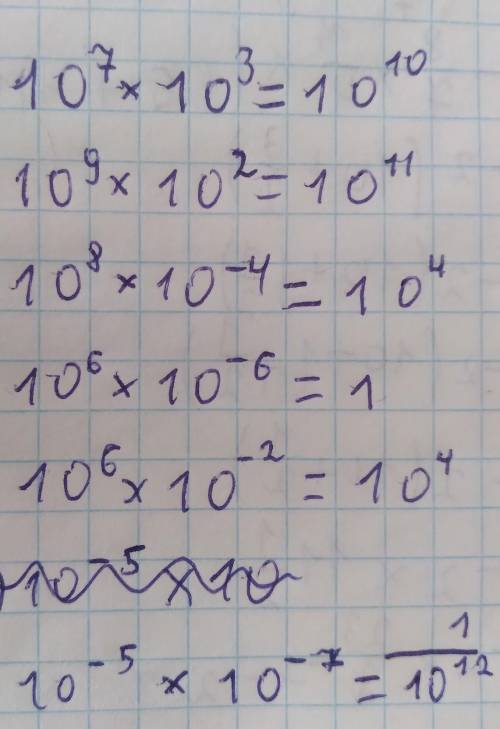 10⁷ × 10³ = 10¹⁰
10⁹ × 10² = 10¹¹
10⁸ × 10⁻⁴ = 10⁴
10⁶ × 10⁻⁶ = 1
10⁶ × 10⁻² = 10⁴
10⁻⁵ × 10
10⁻⁵ × 10⁻⁷ = 1/10¹²